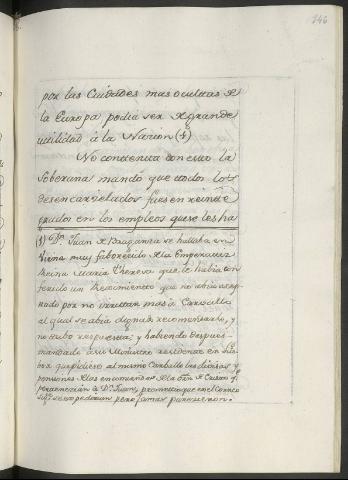 346
por las Ciudades mas ocultas de
la Europa podia ser de grande
utilidad à la Nacion (1)
No contenta con esto la
Soberana mandó que todos los
desencarzelados fuesen reinte
grados en los empleos que se les ha
(1) Dn. Juan de Braganza se hallaba en
Viena muy faborecido de la Emperatriz
Reina Maria Theresa que le habia con
ferido un Regimiento que no abia acep
tado por no irritar mas à Carvallo
al qual se abia dignado recomendarlo, y
no tubo respuesta; y habiendo despues
mandado à su Ministro residente en Lis
boa que pidiese al mismo Carballo las divisas y
pensiones de las encomiendas de la ôrn de Cristo q.
pertenezian à Dn. Juan, prometio que en el Correo
se mandarian pero jamas parecieron.